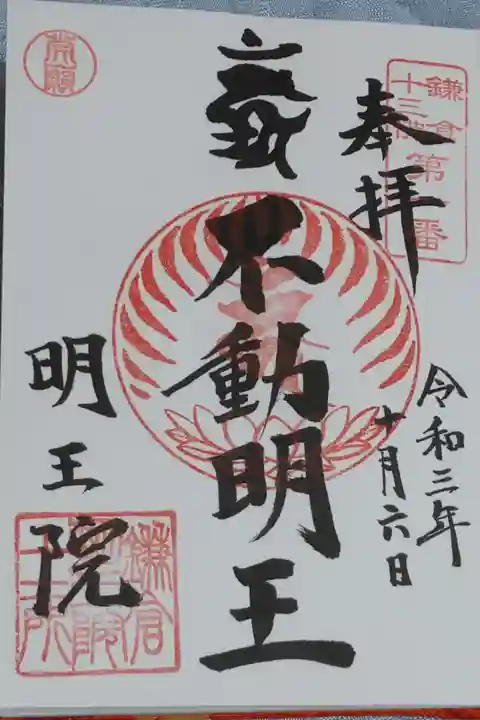 奉拝
鎌倉
十三佛
第一番
令和三年
十月六日
不動明王
明王院